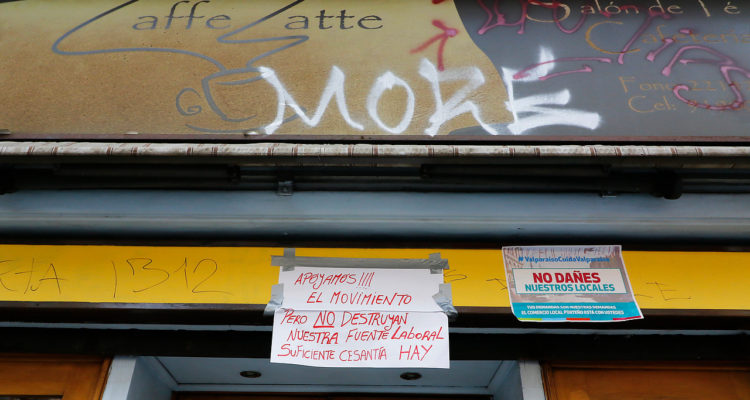 Caffe Latte
Salón de Té
Cafetería
Fono 221
Cel:
MORE
1312
APOYAMOS!!!!
EL MOVIMIENTO
PERO NO DESTRUYAN
NUESTRA FUENTE LABORAL
SUFICIENTE CESANTÍA HAY
#ValparaísoCuidaValparaíso
NO DAÑES
NUESTROS LOCALES
TUS DEMANDAS SON NUESTRAS DEMANDAS
EL COMERCIO LOCAL PORTEÑO ESTÁ CON USTEDES